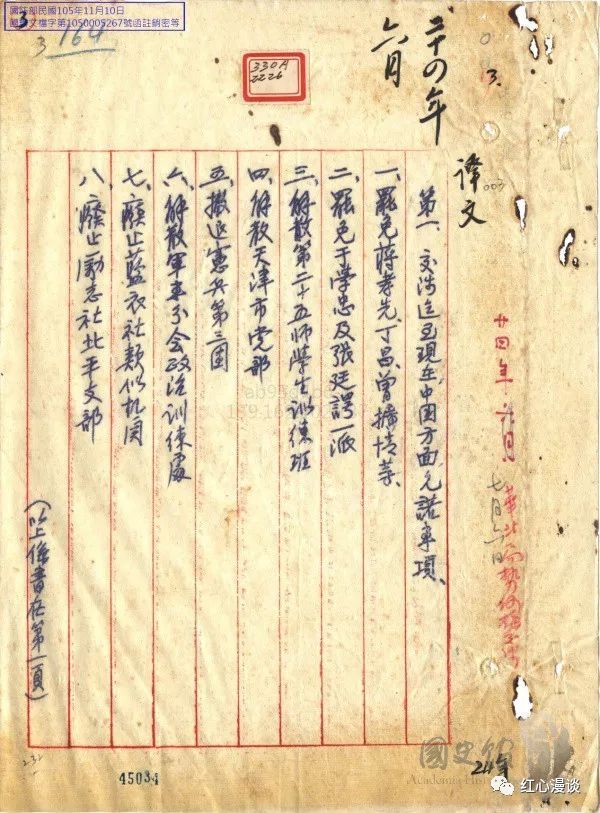 國防部民國105年11月10日
國*文檔字第1050005267號函註銷密等
3
3 164
330A
2226
二十四年
六月
3.
譯文
003
第一、交涉迄至現在中国方面允諾事項、
一、罷免蔣孝先丁昌曾擴情等、
二、罷免于学忠及張廷諤一派
三、解散第二十五师學生训練班
四、解散天津市党部
五、撤退憲兵第三團
六、解散軍事分会政治訓練處
七、廢止藍衣社類似机関
八、廢止励志社北平支部
(以上係書在第一頁)
廿四年六月
七月六日
華北局勢何梅
45034
國史館
Academia Historica
24年
红心漫谈